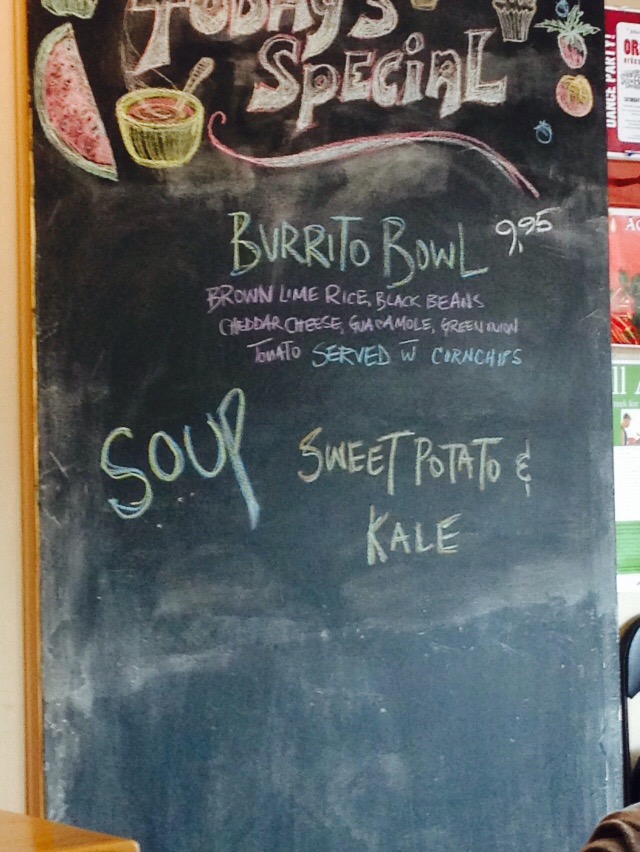 TODAY'S
SPECIAL
BURRITO BOWL 9.95
BROWN LIME RICE, BLACK BEANS
CHEDDAR CHEESE, GUACAMOLE, GREEN ONION
TOMATO SERVED W CORNCHIPS
SOUP SWEET POTATO &
KALE
DANCE PARTY!
OR